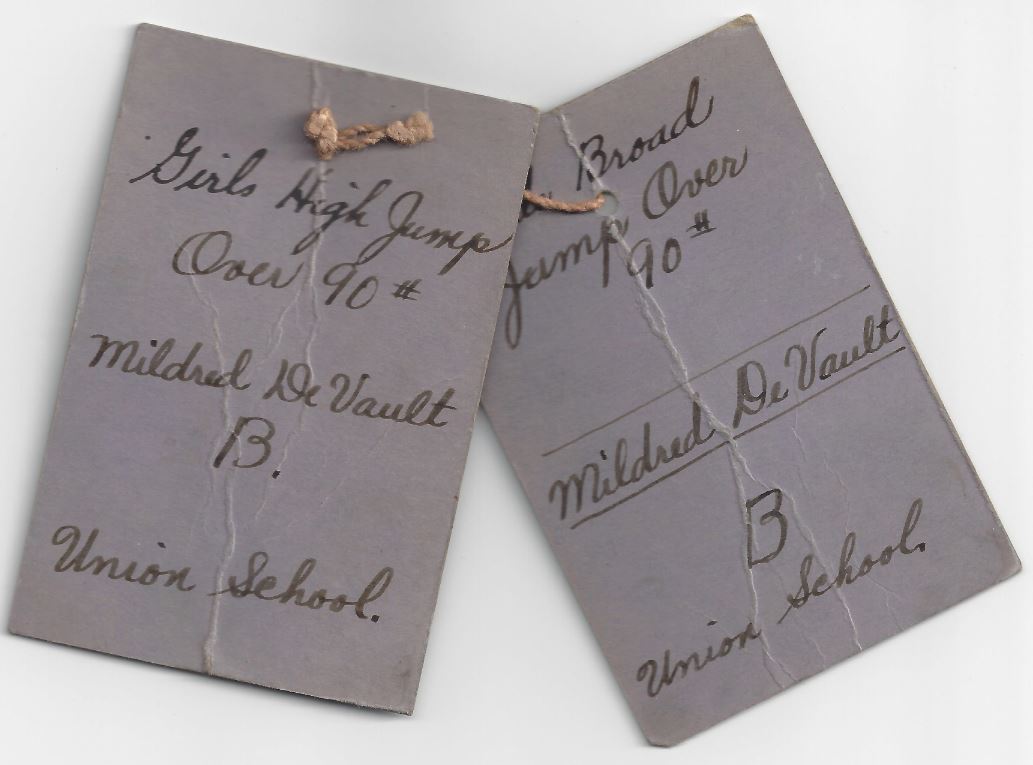 Girls High Jump
Over 90#
Mildred DeVault
B.
Union School.
Broad
Jump Over
90#
Mildred DeVault
B
Union School.